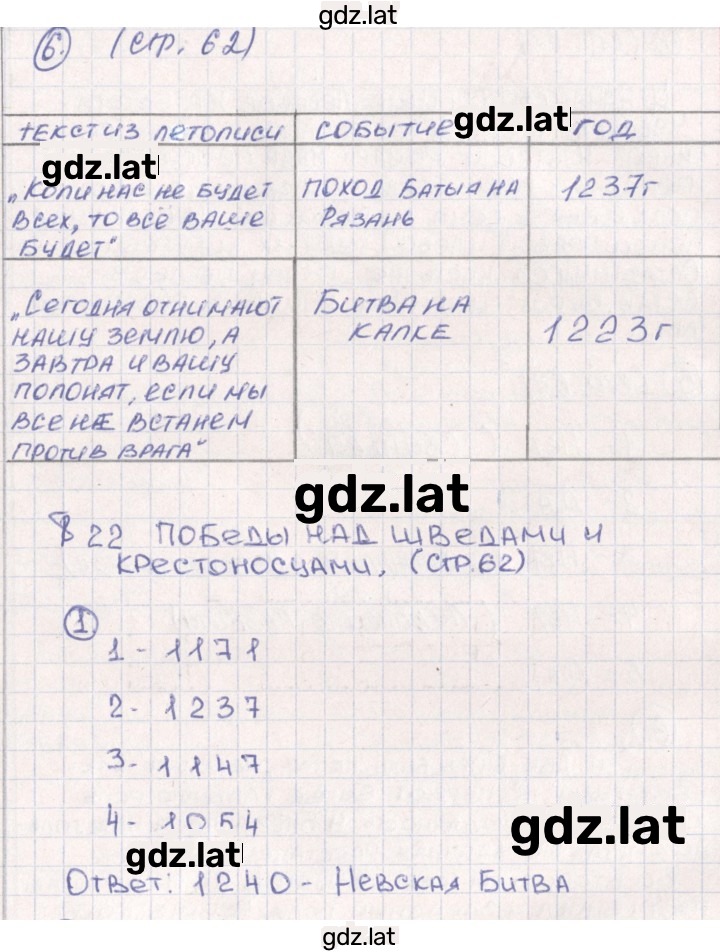 gdz.lat
6. (стр. 62)
текст из летописи
событие
gdz.lat
год
gdz.lat
„Коли нас не будет
всех, то всё ваше
будет"
поход Батыя на
Рязань
1237г
„Сегодня отнимают
нашу землю, а
завтра и вашу
полонят, если мы
все не встанем
против врага"
Битва на
Калке
1223г
gdz.lat
§ 22 Победы над шведами и
крестоносцами. (стр.62)
1
1- 1171
2- 1237
3- 1147
4- 1054
gdz.lat
gdz.lat
Ответ: 1240- Невская Битва
gdz.lat